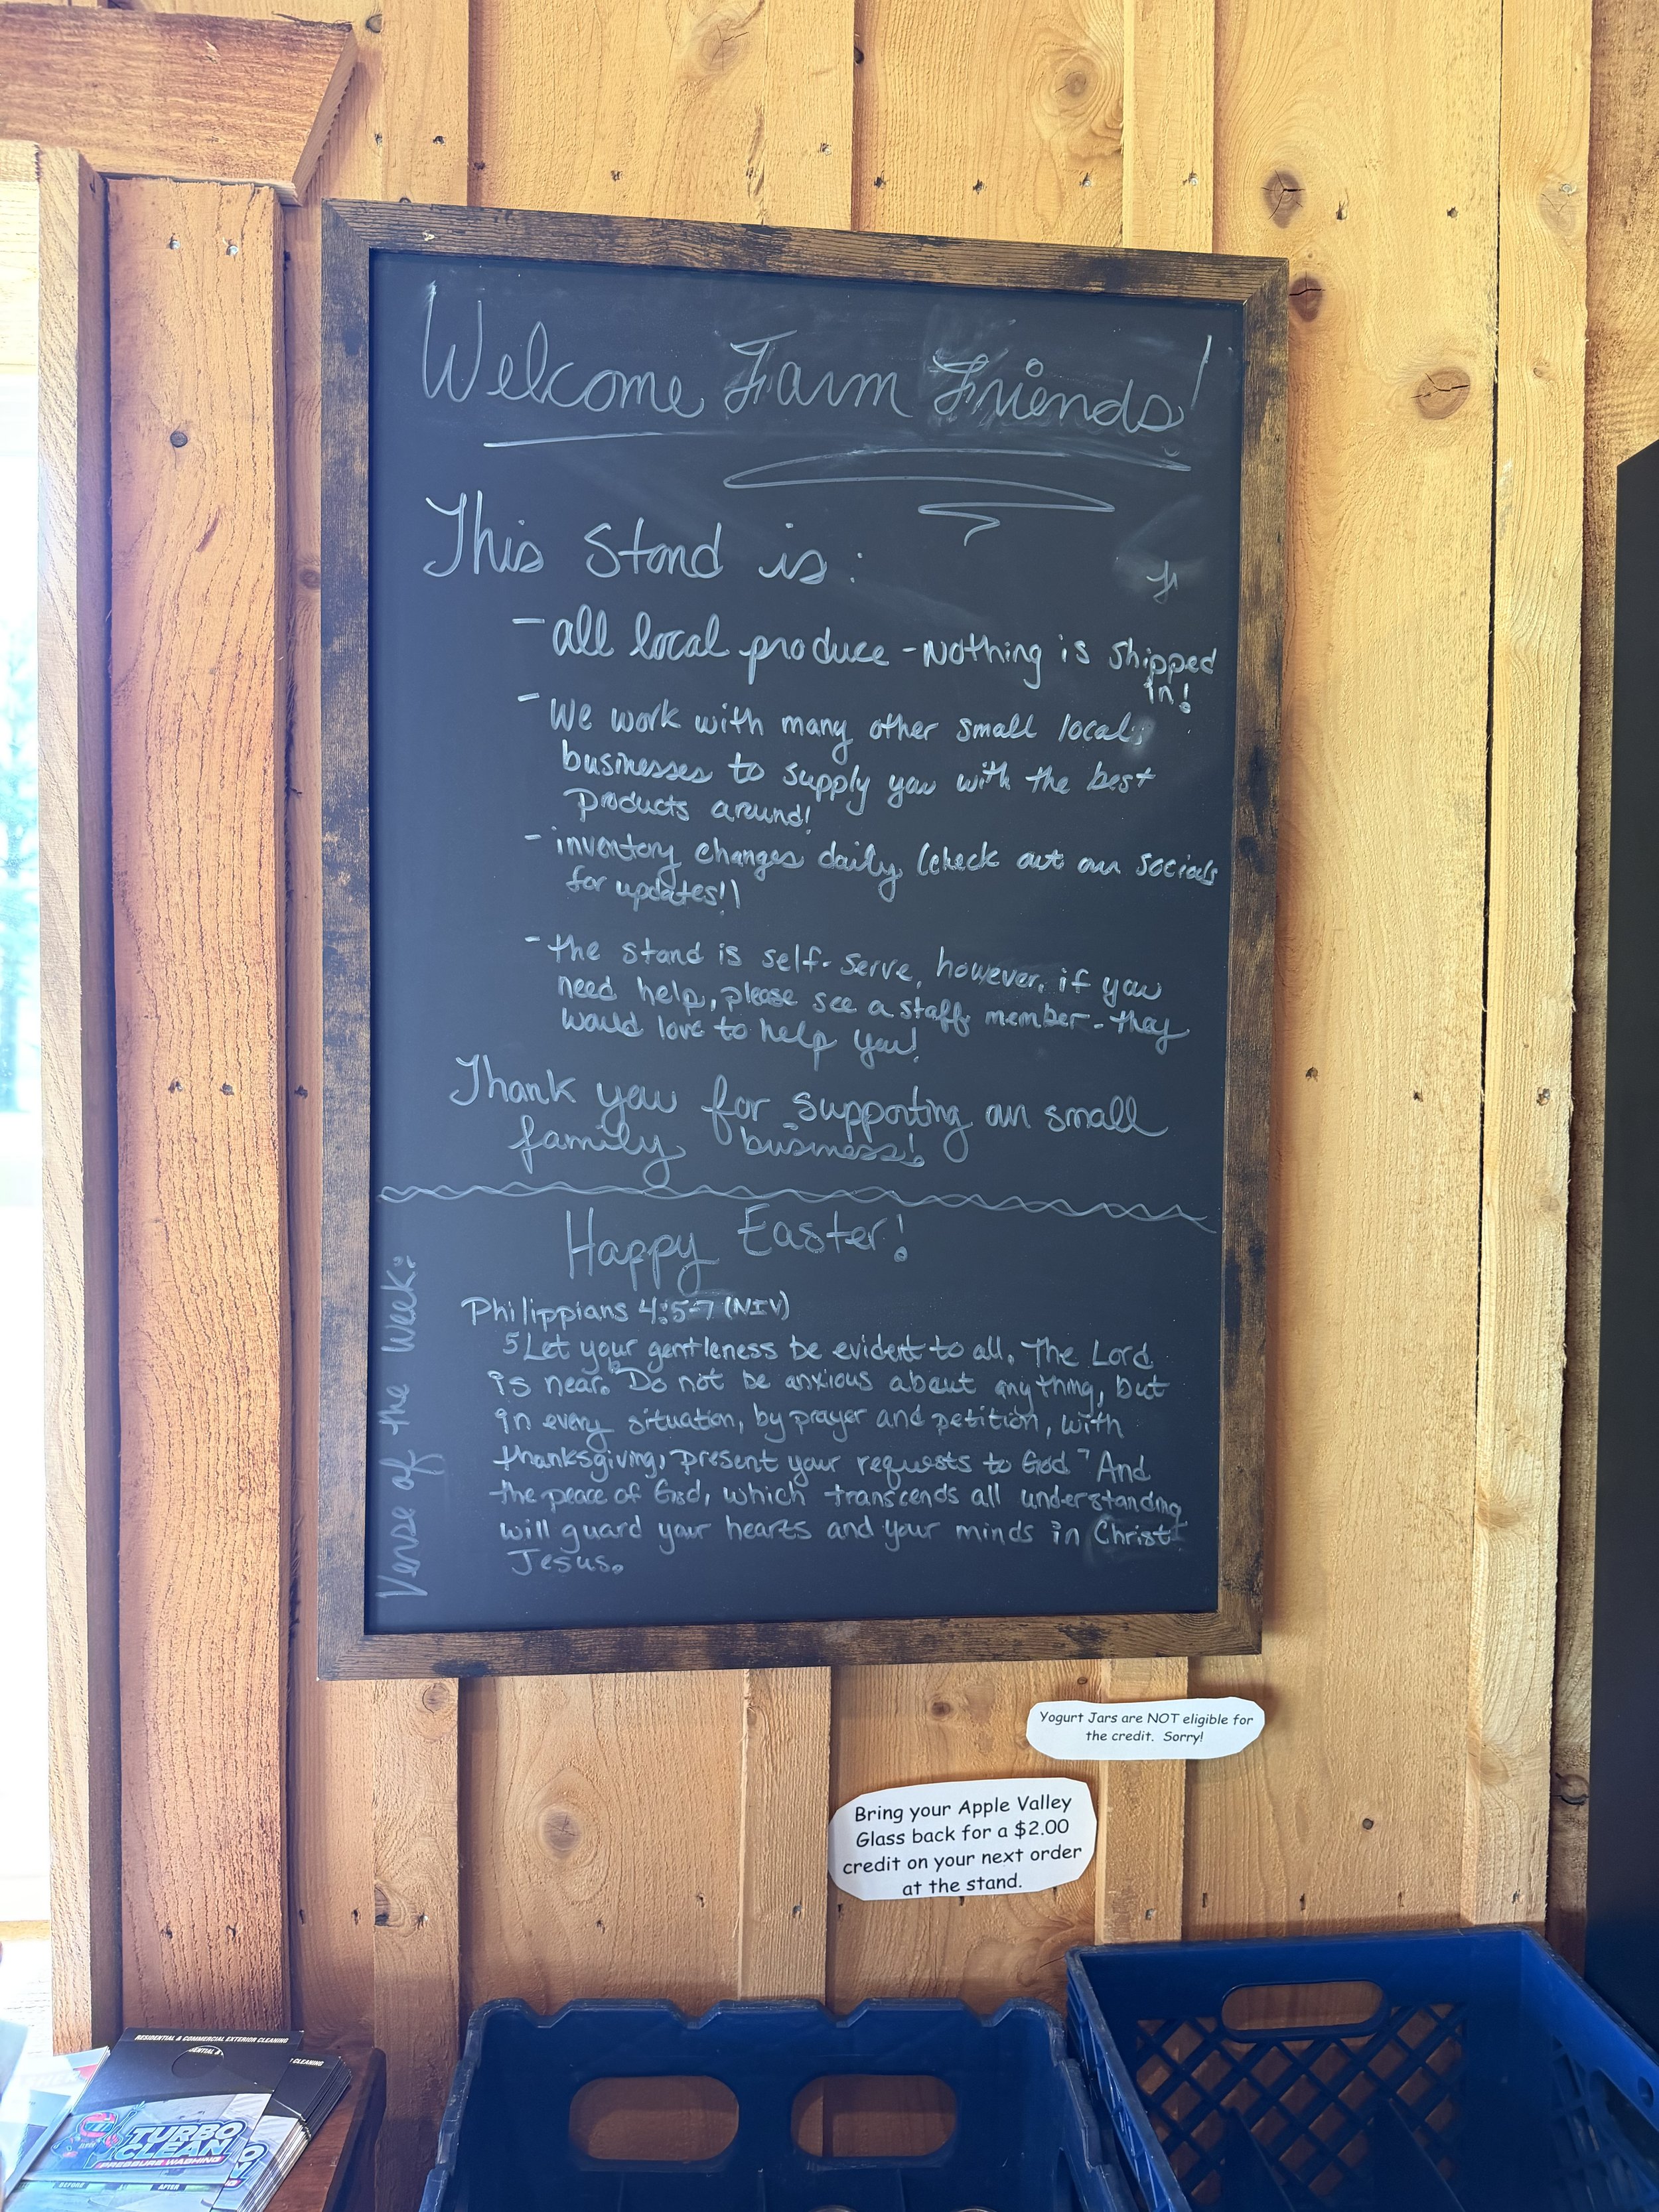 Welcome Farm Friends!
This Stand is:
- all local produce - Nothing is shipped
in!
- We work with many other small local
businesses to supply you with the best
products around!
- inventory changes daily (check out our socials
for updates!)
- the stand is self-serve, however, if you
need help, please see a staff member - they
would love to help you!
Thank you for supporting our small
family business!
Happy Easter!
Verse of the Week:
Philippians 4:5-7 (NIV)
5 Let your gentleness be evident to all. The Lord
is near. 6 Do not be anxious about anything, but
in every situation, by prayer and petition, with
thanksgiving, present your requests to God 7 And
the peace of God, which transcends all understanding
will guard your hearts and your minds in Christ
Jesus.
Yogurt Jars are NOT eligible for
the credit. Sorry!
Bring your Apple Valley
Glass back for a $2.00
credit on your next order
at the stand.
RESIDENTIAL & COMMERCIAL EXTERIOR CLEANING
CLEANING
TURBO
CLEAN
PRESSURE WASHING
BEFORE
AFTER